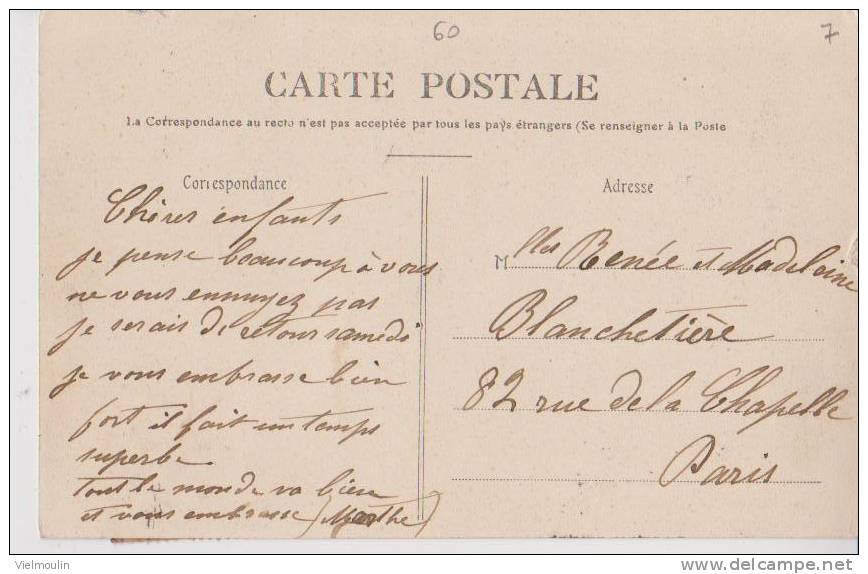 60
7
CARTE POSTALE
La Correspondance au recto n'est pas acceptée par tous les pays étrangers (Se renseigner à la Poste
Correspondance
Chères enfants
je pense beaucoup à vous
ne vous ennuyez pas
je serais de retour samedi
je vous embrasse bien
fort il fait un temps
superbe
tout le monde va bien
et vous embrasse (Marthe)
Adresse
Mlles Renée et Madeleine
Blanchetière
82 rue de la Chapelle
Paris
Vielmoulin
delcampe.net